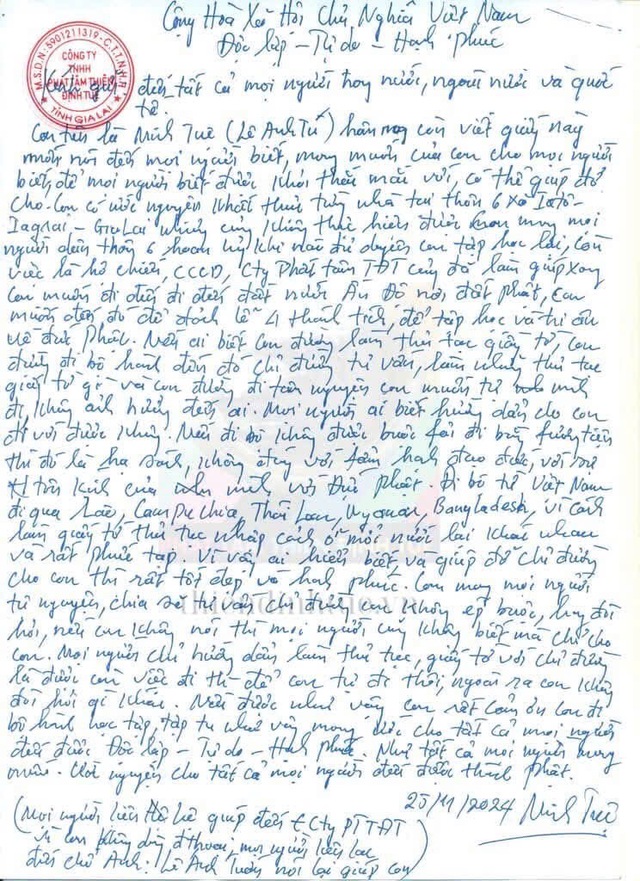 Cộng Hoà Xã Hội Chủ Nghĩa Việt Nam
Độc lập - Tự do - Hạnh Phúc
M.S.D.N: 5901211319 - C.T.T.N.H.H
CÔNG TY
TNHH
PHÁT TÂM THIỀN
ĐỊNH TUỆ
TỈNH GIA LAI
Kính gửi đến tất cả mọi người trong nước, ngoài nước và quốc
tế.
Con tên là Minh Tuệ (Lê Anh Tú) hôm nay con viết giấy này
muốn nói đến mọi người biết, mong muốn của con cho mọi người
biết, để mọi người biết được khỏi thắc mắc với, có thể giúp đỡ
cho. Con có ước nguyện khất thực từng nhà tại thôn 6 xã IaTô-
Iagrai - GiaLai nhưng cũng không thực hiện được mong mọi
người dân thôn 6 hoan hỷ khi nào đủ duyên con tập học lại, còn
việc là hộ chiếu, CCCD, Cty Phát tâm TĐT cũng đã làm giúp xong
con muốn đi đến đi đến đất nước Ấn Độ nơi đất Phật, con
muốn đến đó để đảnh lễ 4 thánh tích, để tập học và tri ân
về đức Phật. Nên ai biết con đường làm thủ tục giấy tờ, con
đường đi bộ hành đến đó chỉ đường tư vấn, làm những thủ tục
giấy tờ gì và con đường đi toàn nguyện con muốn tự mình
đi, không ảnh hưởng đến ai. Mọi người ai biết hướng dẫn cho con
đi với được không. Nếu đi bộ không được buộc phải đi bằng phương tiện
thì đó là hạ sách, không đúng với tâm hạnh đạo đức, với sự
tôn kính của mình với Đức Phật. Đi bộ từ Việt Nam
đi qua Lào, Campuchia, Thái Lan, Myanmar, Bangladesh, vì cách
làm giấy tờ thủ tục nhập cảnh ở mỗi nước lại khác nhau
và rất phức tạp. Vì vậy ai hiểu biết và giúp đỡ chỉ đường
cho con thì rất tốt đẹp và hạnh phúc. Con mong mọi người
tự nguyện, chia sẻ tư vấn chỉ đường con không ép buộc, hay đòi
hỏi, nếu con không nói thì mọi người cũng không biết mà chỉ cho
con. Mọi người chỉ hướng dẫn làm thủ tục, giấy tờ với chỉ đường
là được còn việc đi thì để con tự đi thôi, ngoài ra con không
đòi hỏi gì khác. Nếu được như vậy con rất cảm ơn con đi
bộ hành học tập, tập tu như vậy mong ước cho tất cả mọi người
đến được Độc lập - Tự do - Hạnh phúc. Như tất cả mọi người mong
muốn. Ước nguyện cho tất cả mọi người đến được thành Phật.
25/11/2024 Minh Tuệ
(Mọi người liên hệ hỗ trợ giúp đến Cty PTTĐT
Vì con không dùng điện thoại, mọi người liên lạc
đến chú Anh: Lê Anh Tuấn nói lại giúp con)
thiendinhtue.vn